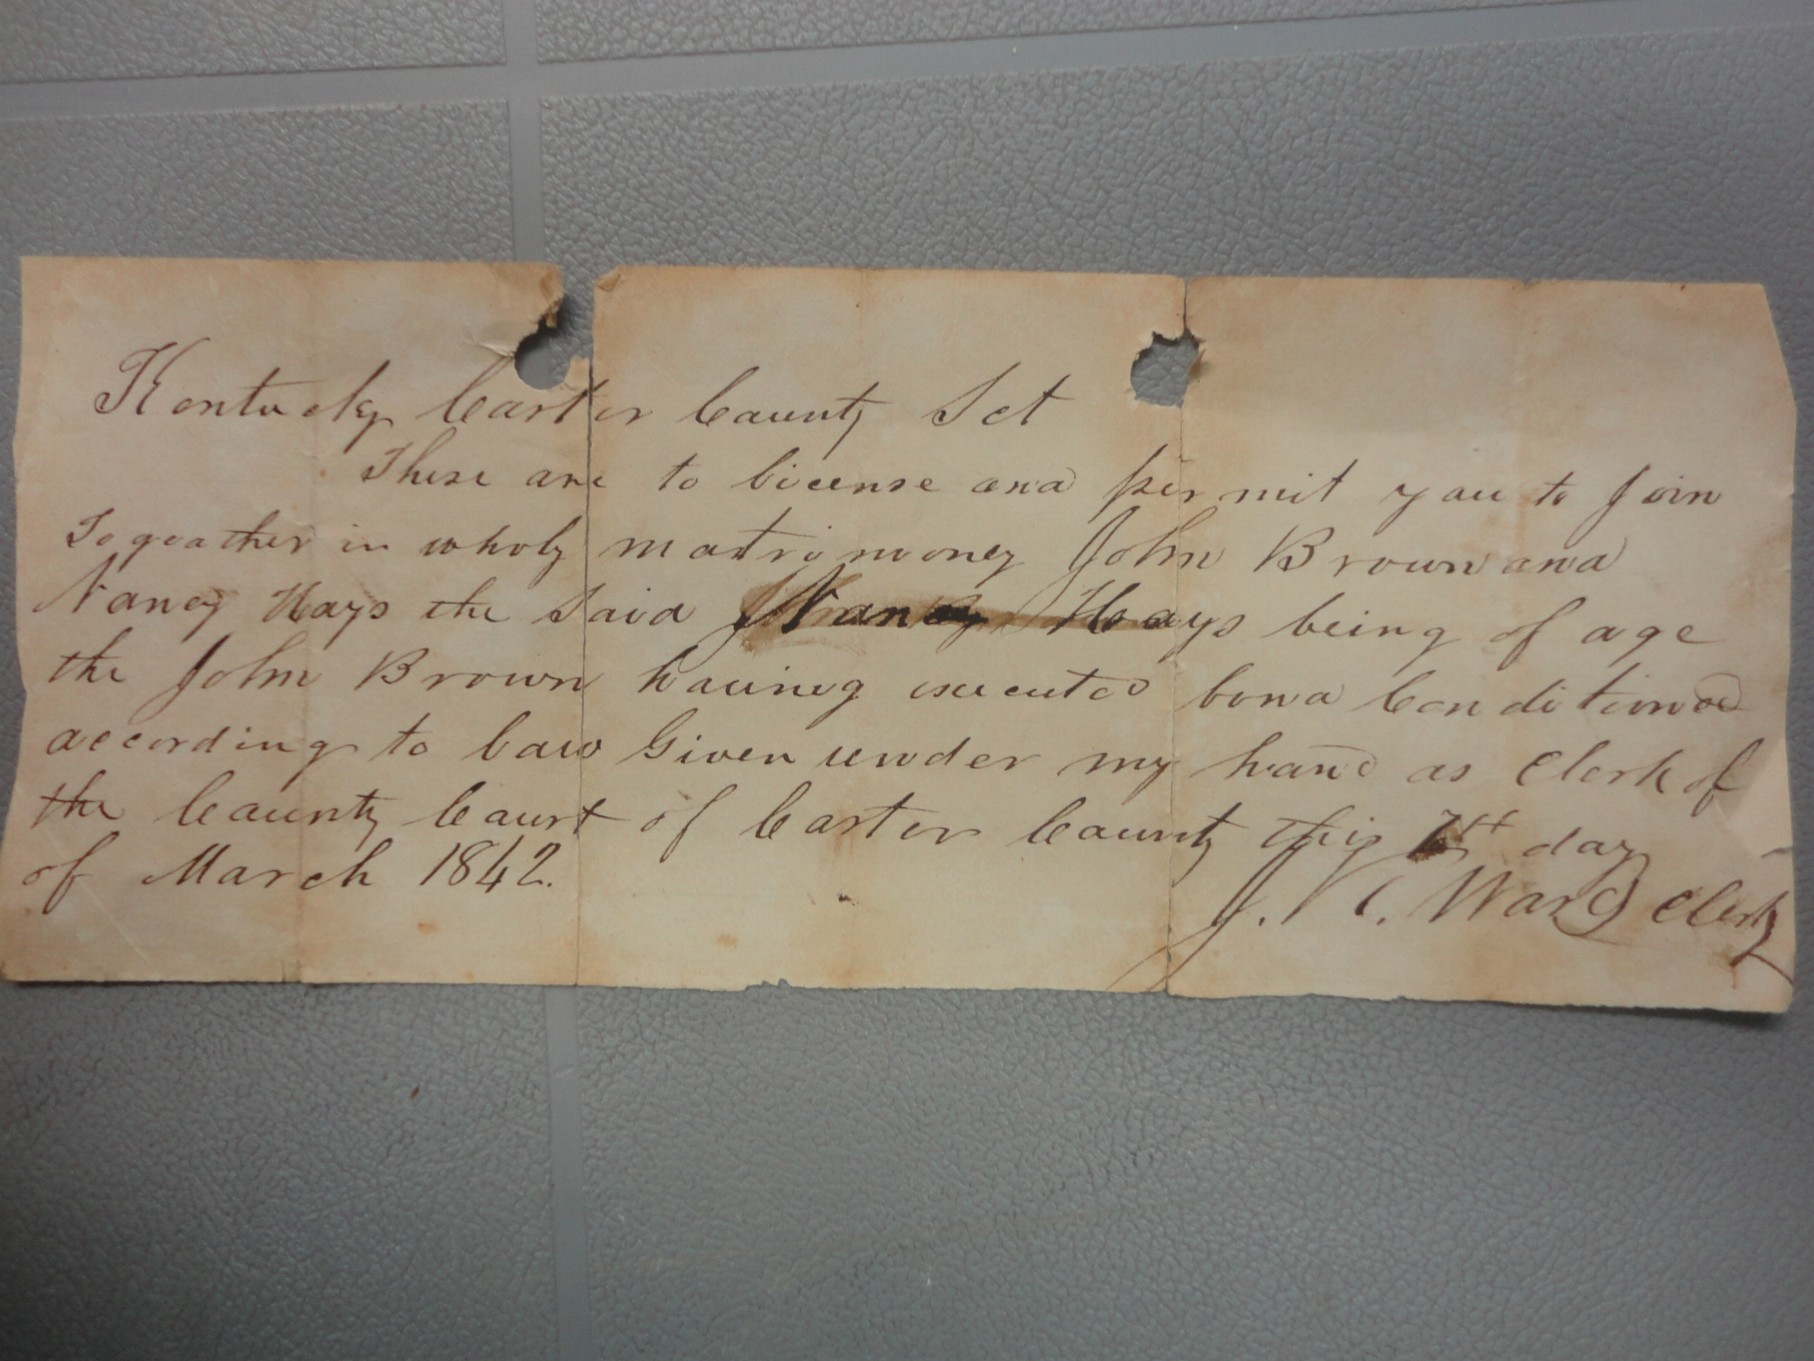 Kentucky Carter County Sct
These are to License and permit you to Join
Togeather in wholy matrimoney John Brown and
Nancy Hays the Said Nancy Hays being of age
the John Brown haveing executed bond Conditioned
according to Law Given under my hand as Clerk of
the County Court of Carter County this 7th day
of March 1842.
J. N. C. Ward Clerk